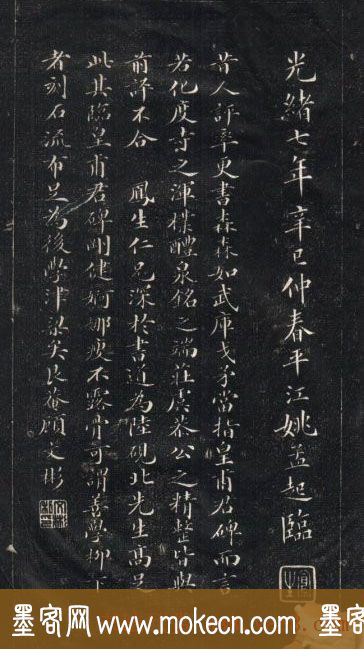 光緒七年辛巳仲春平江姚孟起臨
昔人評率更書森森如武庫戈矛當指皇甫君碑而言
若化度寺之渾樸醴泉銘之端莊虞恭公之精整皆與
前評不合 鳳生仁兄深於書道為陸硯北先生高足
此其臨皇甫君碑剛健婀娜瘦不露骨可謂善學柳下
者刻石流布足為後學津梁矣艮菴顧文彬
墨客网 www.mokecn.com